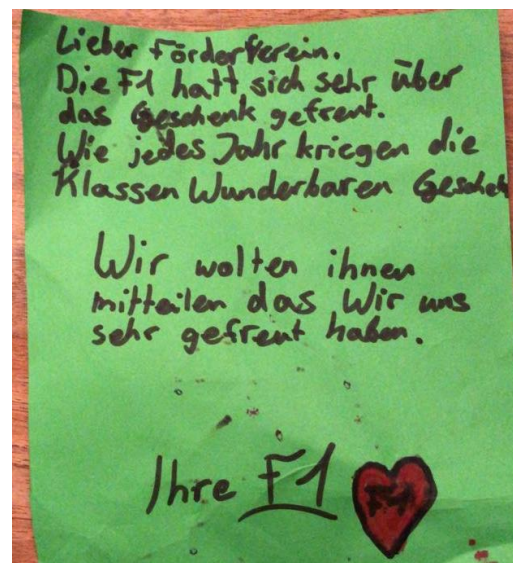 Lieber Förderferein.
Die F1 hatt sich sehr über
das Geschenk gefreut.
Wie jedes Jahr kriegen die
Klassen Wunderbaren Geschek
Wir wolten ihnen
mitteilen das Wir uns
sehr gefreut haben.
Ihre F1
F1